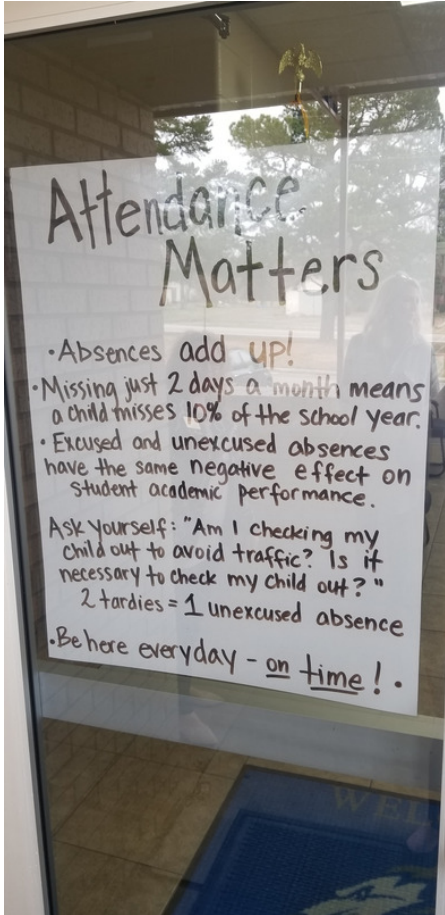 Attendance
Matters
· Absences add up!
· Missing just 2 days a month means
a child misses 10% of the school year.
· Excused and unexcused absences
have the same negative effect on
student academic performance.
Ask yourself: "Am I checking my
child out to avoid traffic? Is it
necessary to check my child out?"
2 tardies = 1 unexcused absence
· Be here everyday - on time! ·
WEL